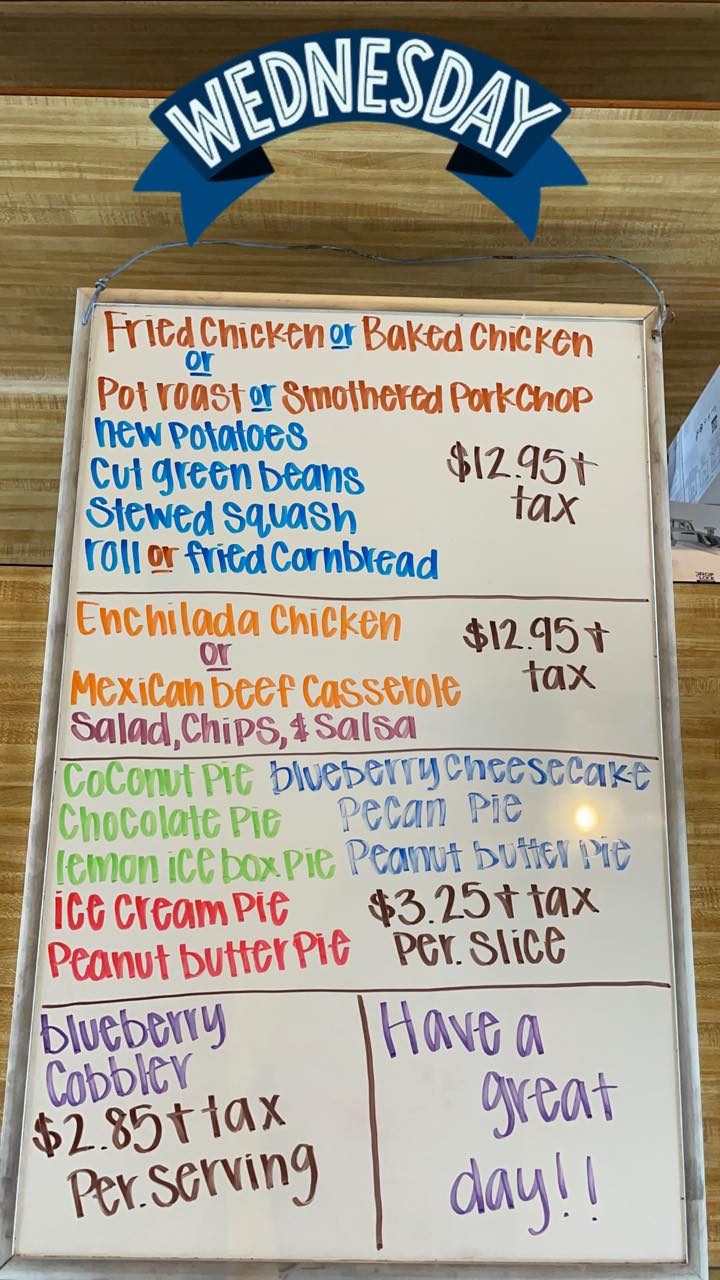 WEDNESDAY
Fried Chicken or Baked Chicken
or
Pot roast or Smothered Pork Chop
new potatoes
Cut green beans
Stewed squash
roll or fried Cornbread
$12.95+
tax
Enchilada Chicken
or
Mexican beef Casserole
Salad, Chips, & Salsa
$12.95+
tax
Coconut Pie
Chocolate Pie
lemon ice box Pie
ice cream Pie
Peanut butter Pie
blueberry cheesecake
Pecan Pie
Peanut butter pie
$3.25+ tax
Per. Slice
blueberry
Cobbler
$2.85+ tax
Per. Serving
Have a
great
day!!